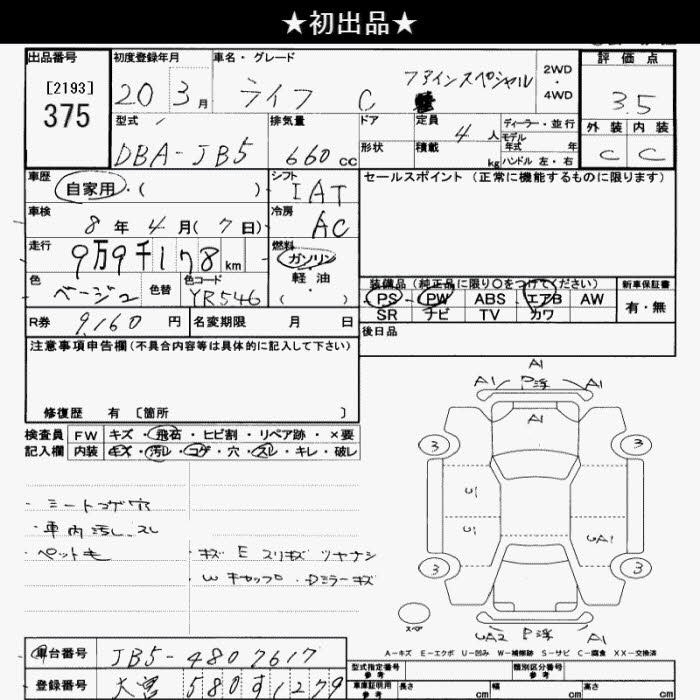 ★初出品★
出品番号
[2193]
375
初度登録年月
20 3 月
車名・グレード
ライフ C ファインスペシャル
2WD
・
4WD
評価点
3.5
外装 内装
C C
型式
DBA-JB5
排気量
660 cc
ドア
形状
定員
4 人
積載
kg
ディーラー・並行
モデル
年式 年
ハンドル 左・右
車歴
自家用・( )
シフト
IAT
セールスポイント(正常に機能するものに限ります)
車検
8 年 4 月( 7 日)
冷房
AC
走行
9万9千178 km
燃料
ガソリン
軽油
( ・ )
色
ベージュ
色替
色コード
YR546
装備品(純正品に限り○をつけてください)
PS PW ABS エアB AW
SR ナビ TV カワ
新車保証書
有・無
R券 9,160 円
名変期限 月 日
後日品
注意事項申告欄(不具合内容等は具体的に記入して下さい)
修復歴 有 〔箇所 〕
検査員
記入欄
FW キズ・飛石・ヒビ割・リペア跡・×要
内装 キズ・汚レ・コゲ・穴・スレ・キレ・破レ
・シートコゲ穴
・車内汚レ、スレ
・ペット毛
・キズ E スリキズ ツヤナシ
・W キャップ ・Dミラーキズ
A1
A1 P浮 A1
A1
3 3
U1
U1 UA1
3 3
スペア
UA2 P浮 A1
A-キズ E-エクボ U-凹み W-補修跡 S-サビ C-腐食 XX-交換済
車台番号 JB5-4807617
登録番号 大宮 580 す 1279
型式指定番号
参考
類別区分番号
参考
車庫証明用
参考
長さ cm
幅 cm
高さ cm